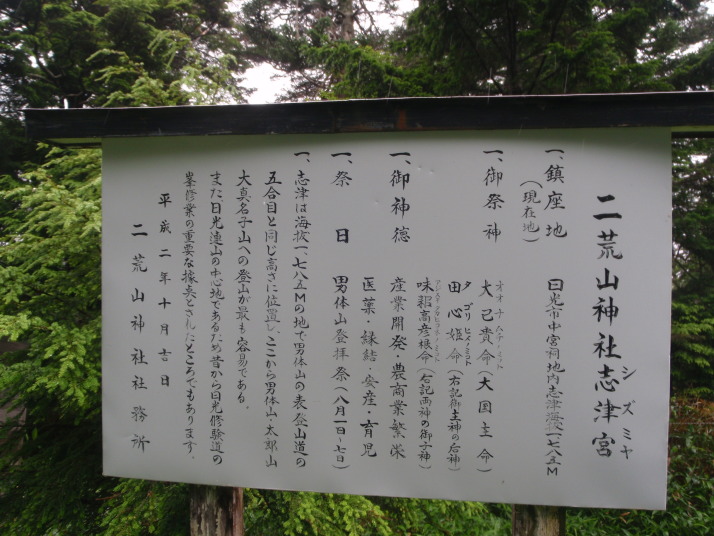 二荒山神社志津宮
シズミヤ
一、鎮座地 日光市中宮祠地内志津海抜一七八五M
(現在地)
一、御祭神 大己貴命(大国主命)
オオナムチノミコト
田心姫命(右記御主神の后神)
タゴリヒメノミコト
味耜高彦根命(右記両神の御子神)
一、御神徳 産業開発・農商業繁栄
医薬・縁結・安産・育児
一、祭日 男体山登拝祭(八月一日〜七日)
一、志津は海抜一、七八五Mの地で男体山の表登山道の
五合目と同じ高さに位置し、ここから男体山・太郎山
大真名子山への登山が最も容易である。
また日光連山の中心地であるため昔から日光修験道の
峯修業の重要な拠点とされたところでもあります。
平成二年十月吉日
二荒山神社社務所